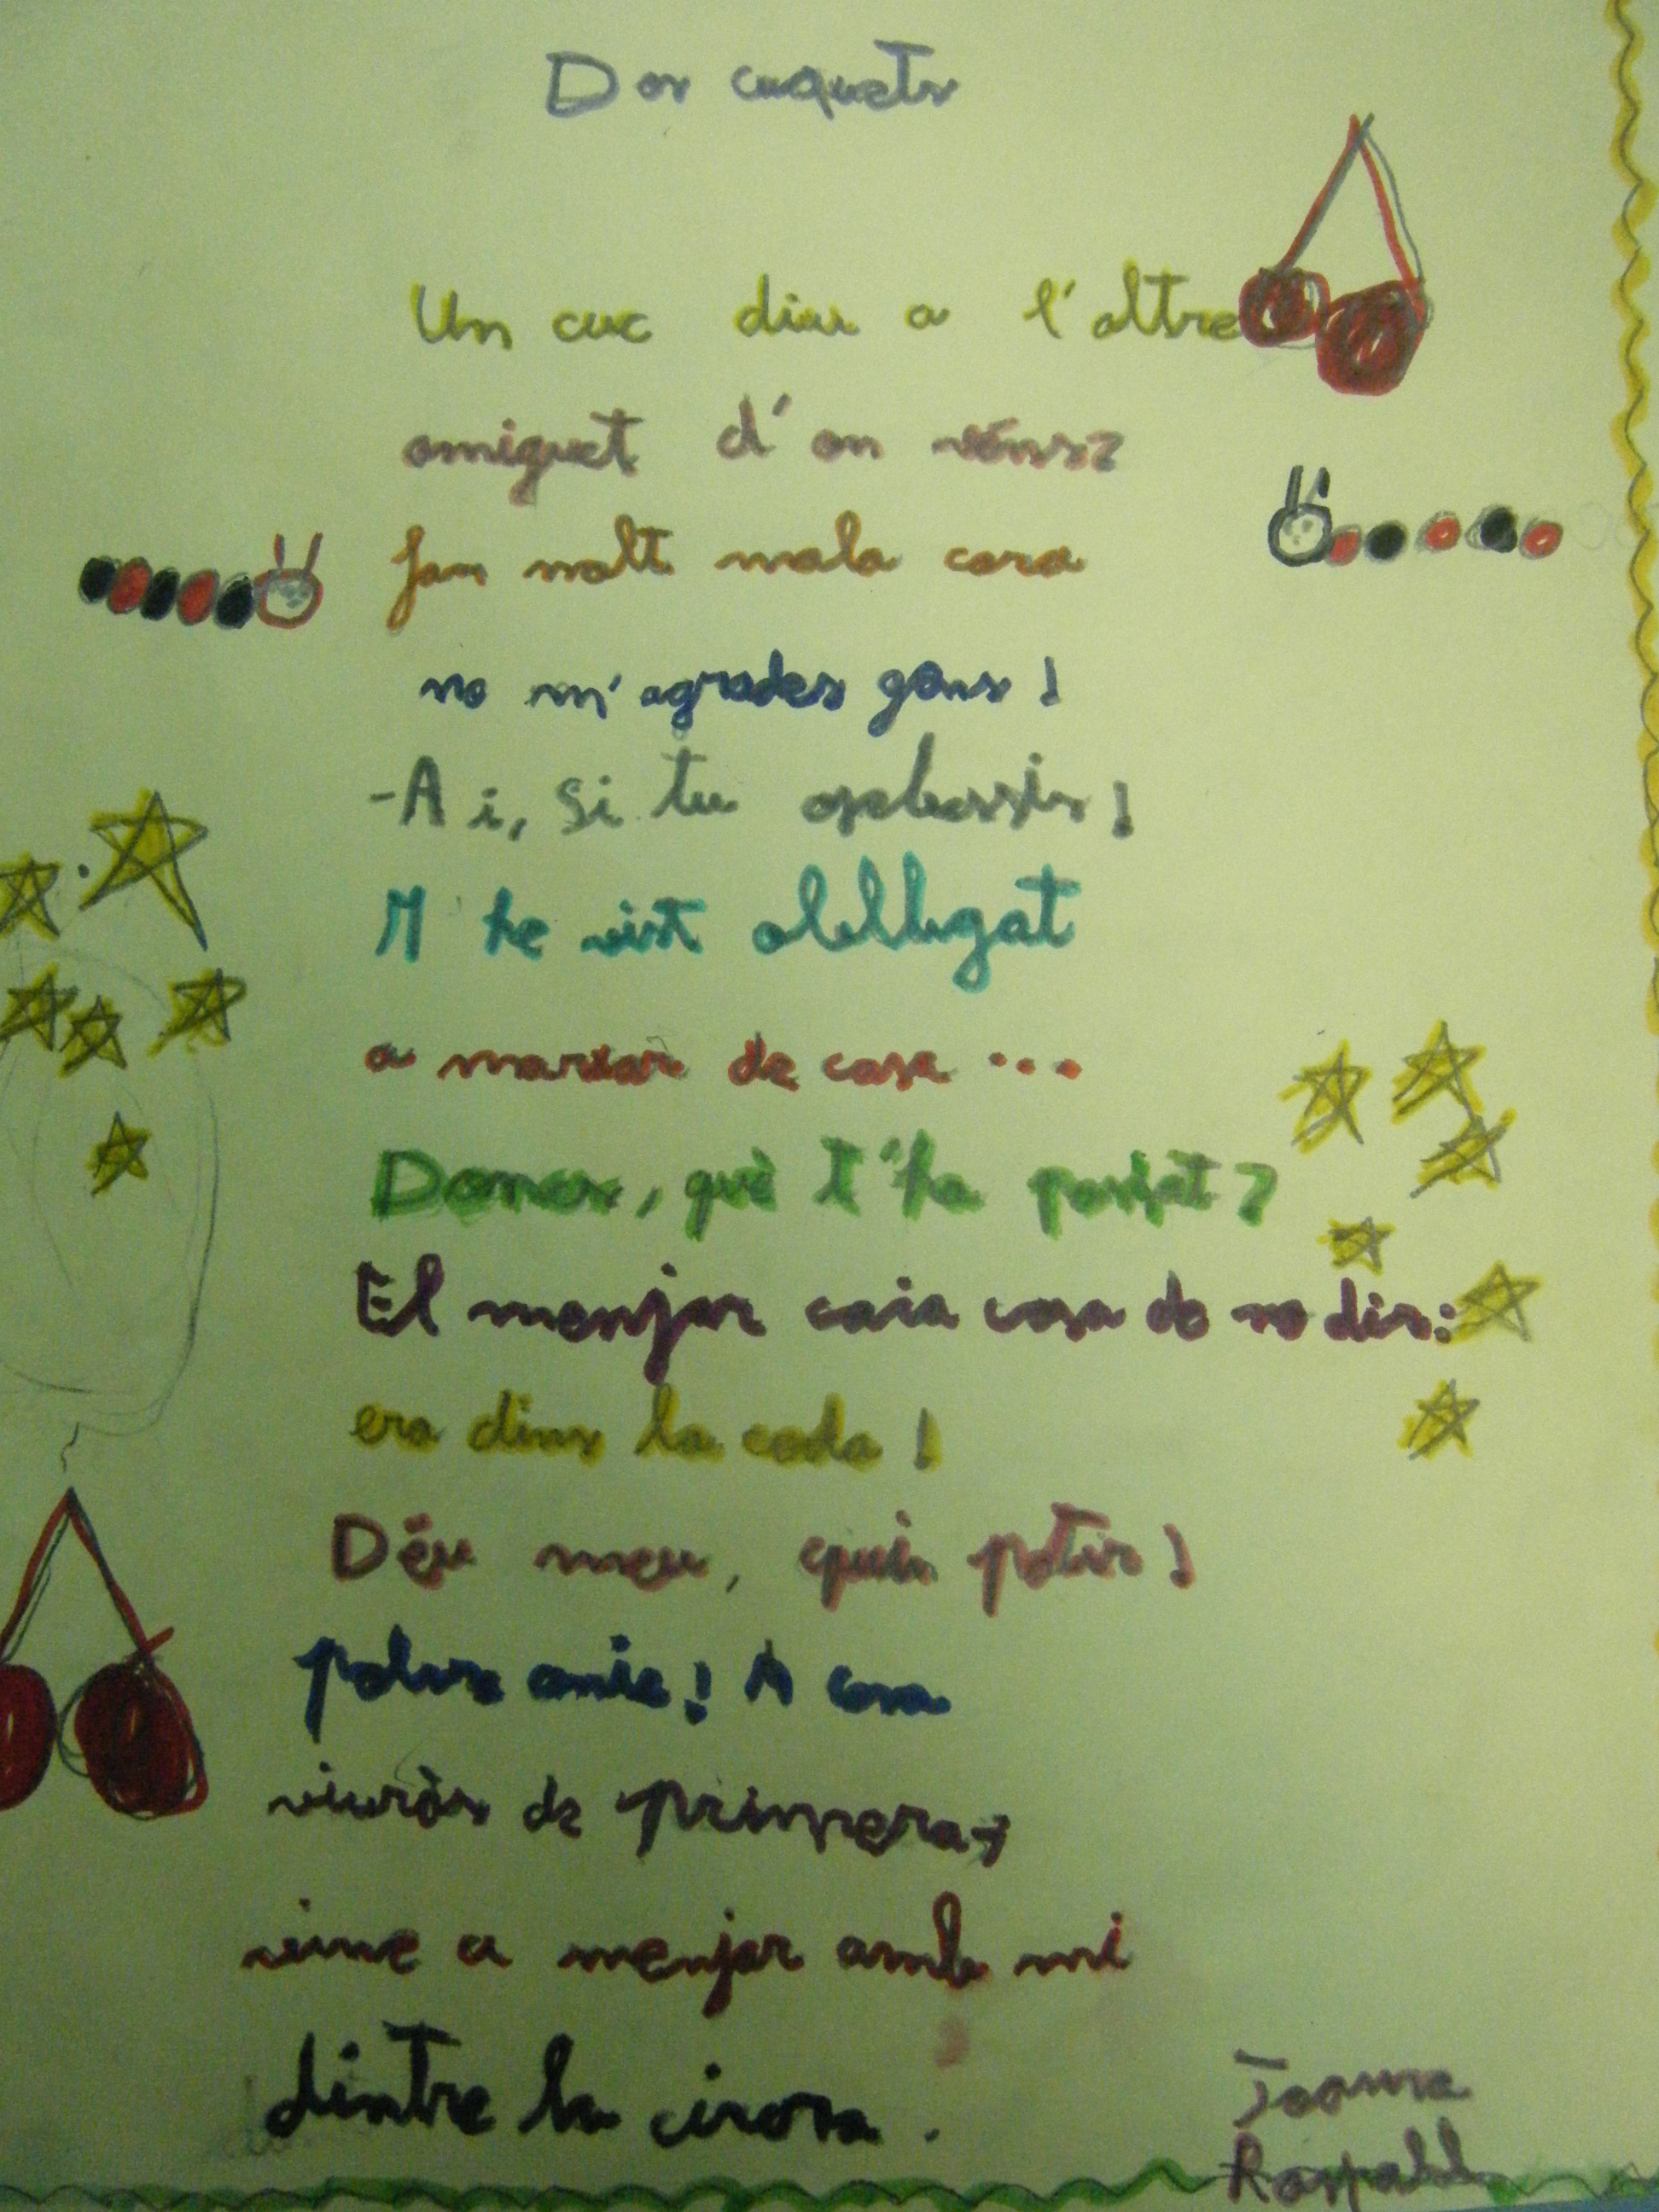 Dos cuquets
Un cuc diu a l'altre
amiguet d'on véns?
fas molt mala cara
no m'agrades gens!
-Ai, si tu sabessis!
M he vist oblligat
a marxar de casa...
Doncs, què t'ha passat?
El menjar caia cosa de no dir:
era dins la coda!
Déu meu, quin patir!
pobre amic! A casa
viuràs de primera;
vine a menjar amb mi
dintre la cirera.
Joana
Raspall